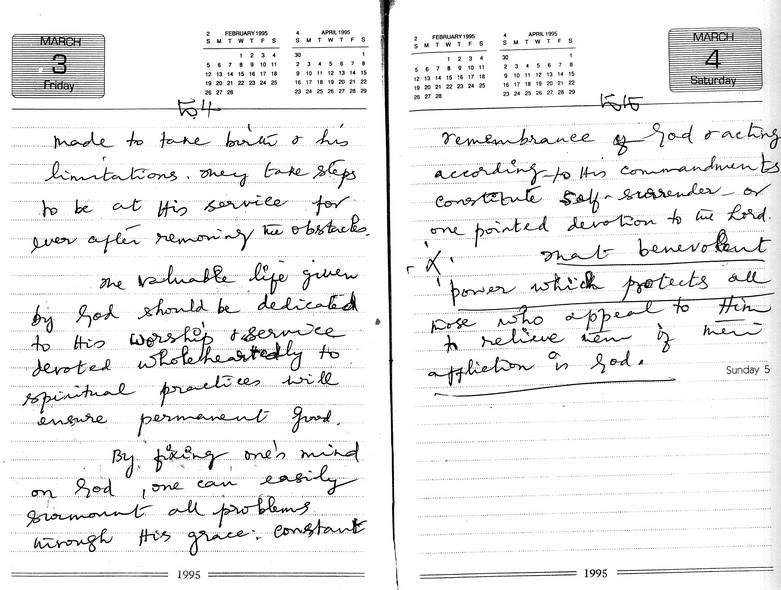 MARCH
3
Friday
2 FEBRUARY 1995
S M T W T F S
1 2 3 4
5 6 7 8 9 10 11
12 13 14 15 16 17 18
19 20 21 22 23 24 25
26 27 28
4 APRIL 1995
S M T W T F S
30 1
2 3 4 5 6 7 8
9 10 11 12 13 14 15
16 17 18 19 20 21 22
23 24 25 26 27 28 29
made to take birth & his
limitations. They take steps
to be at His service for
ever after removing the obstacles.
The valuable life given
by God should be dedicated
to His worship & service
devoted wholeheartedly to
spiritual practices will
ensure permanent Good.
By fixing one's mind
on God, one can easily
surmount all problems
through His grace. Constant
1995
2 FEBRUARY 1995
S M T W T F S
1 2 3 4
5 6 7 8 9 10 11
12 13 14 15 16 17 18
19 20 21 22 23 24 25
26 27 28
4 APRIL 1995
S M T W T F S
30 1
2 3 4 5 6 7 8
9 10 11 12 13 14 15
16 17 18 19 20 21 22
23 24 25 26 27 28 29
MARCH
4
Saturday
remembrance of God & acting
according to His commandments
constitute Self-surrender or
one pointed devotion to the Lord.
That benevolent
power which protects all
those who appeal to Him
to relieve them of their
affliction is God.
Sunday 5
1995